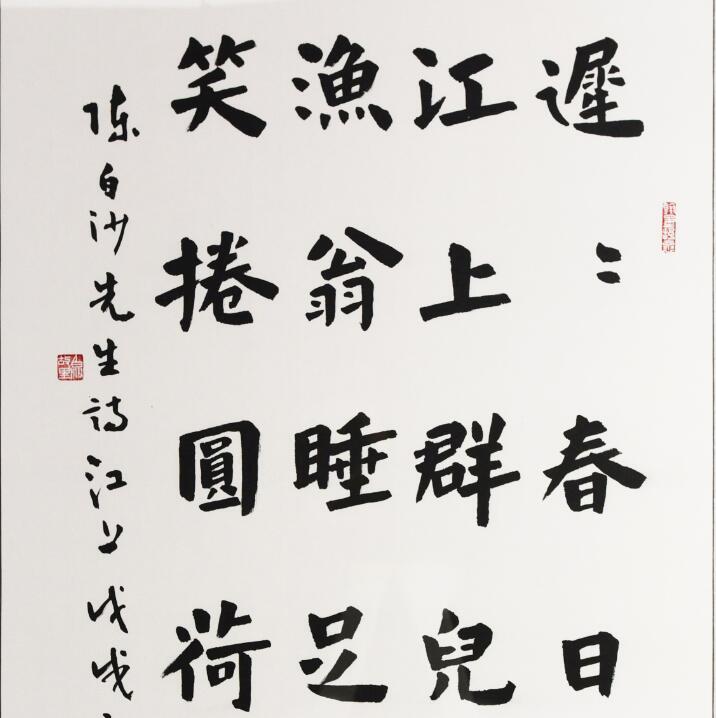 遲〻春日
江上群兒
漁翁睡足
笑捲圓荷
陳白沙先生詩江上戊戌